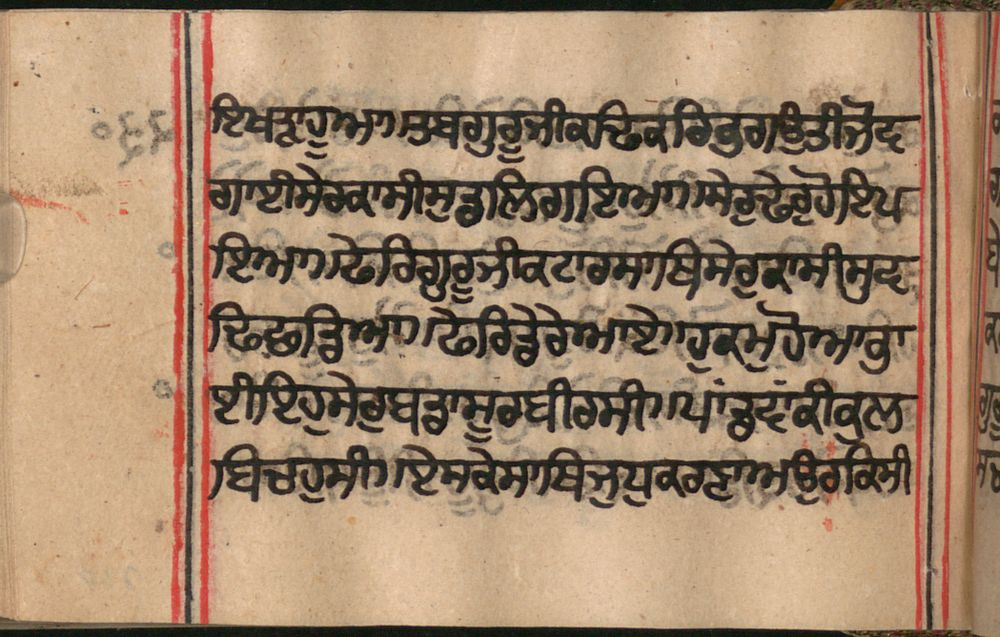 ਇਖੜਾਹੂਆ॥ਤਬਗੁਰੂਜੀਕਢਿਕਰਿਭੁਗਉਤੀਜੋਦ
ਗਾਈਸੇਰਕਾਸੀਸੁਡਲਿਗਇਆ॥ਸੇਰੁਢੇਰੁਹੋਇਪ
ਇਆ॥ਫੇਰਿਗੁਰੂਜੀਕਟਾਰਸਾਥਿਸੇਰੁਕਾਸੀਸੁਦ
ਢਿਛਡਿਆ॥ਫੇਰਿਡੇਰੇਆਏ॥ਹੁਕਮੁਹੋਆਭਾ
ਈਇਹੁਸੇਰੁਬਡਾਸੂਰਬੀਰਸੀ॥ਪਾਂਡਵਾਂਕੀਕੁਲ
ਬਿਚਹੁਸੀ॥ਇਸਕੇਸਾਥਿਜੁਧੁਕਰਣਾਅਉਰਕਿਸੀ